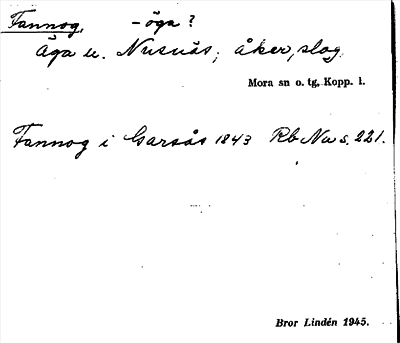 Fannog, -öga?
Äga u. Nusnäs; åker, slog.
Mora sn o. tg, Kopp. l.
Fannog i Garsås 1843 Rb Nu s. 221.
Bror Lindén 1945.